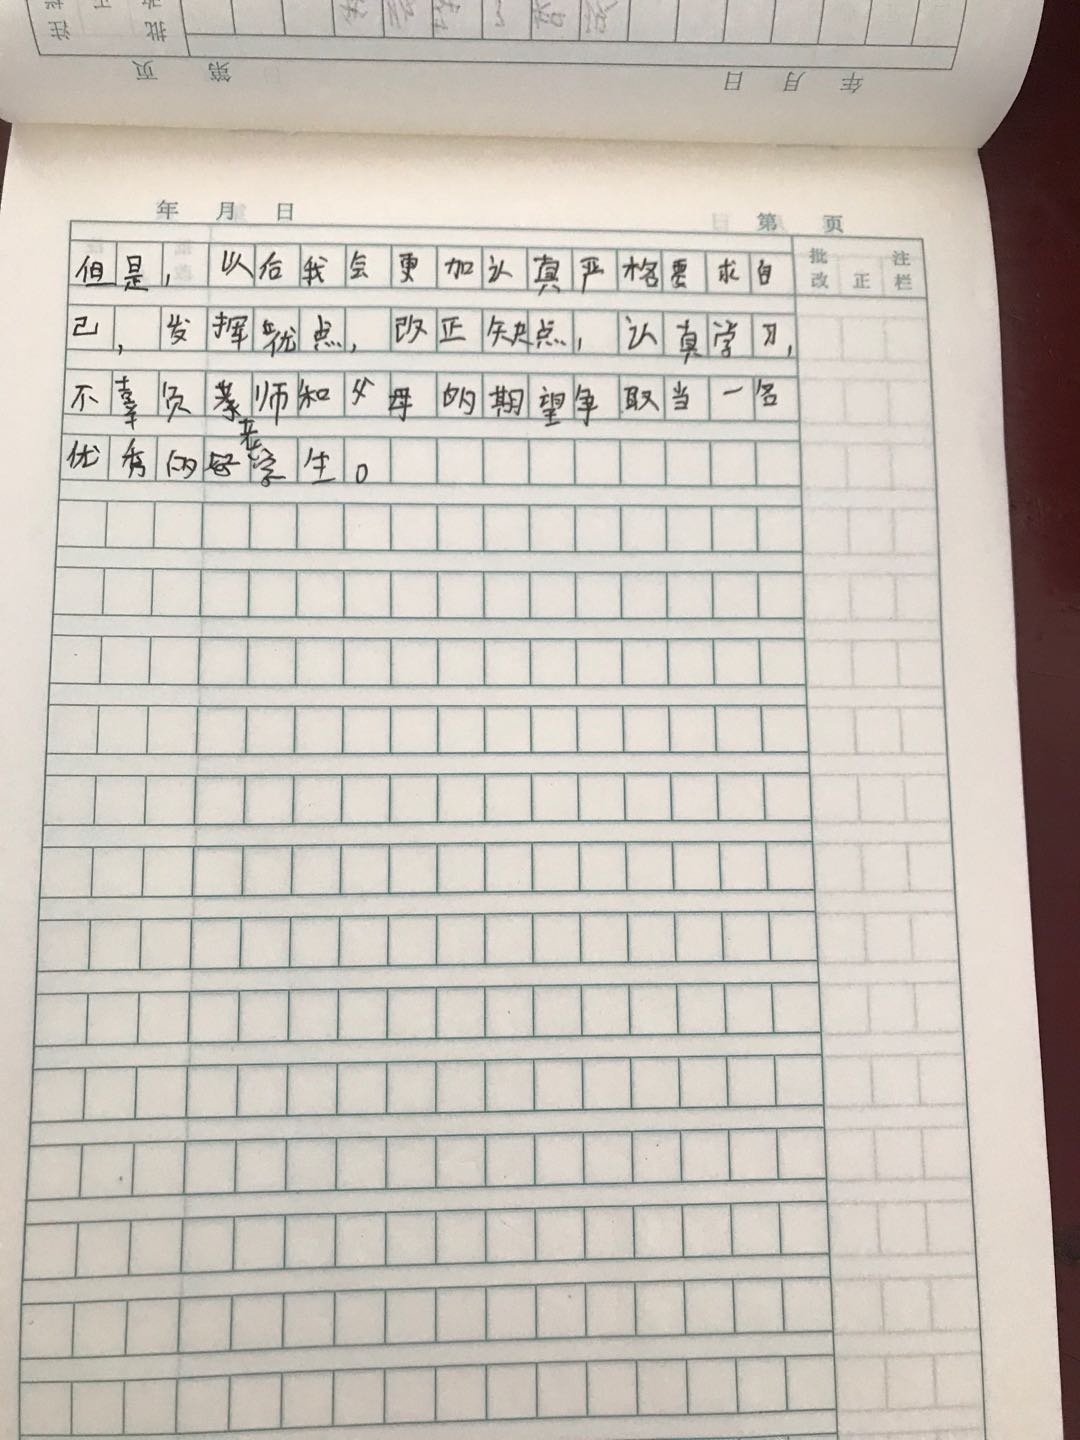 注 正 批改
页 第 日 月 年
年 月 日 第 页
批改 正 注栏
但是，以后我会更加认真严格要求自
己，发挥优点，改正缺点，认真学习，
不辜负老师和父母的期望争取当一名
优秀的好学生。